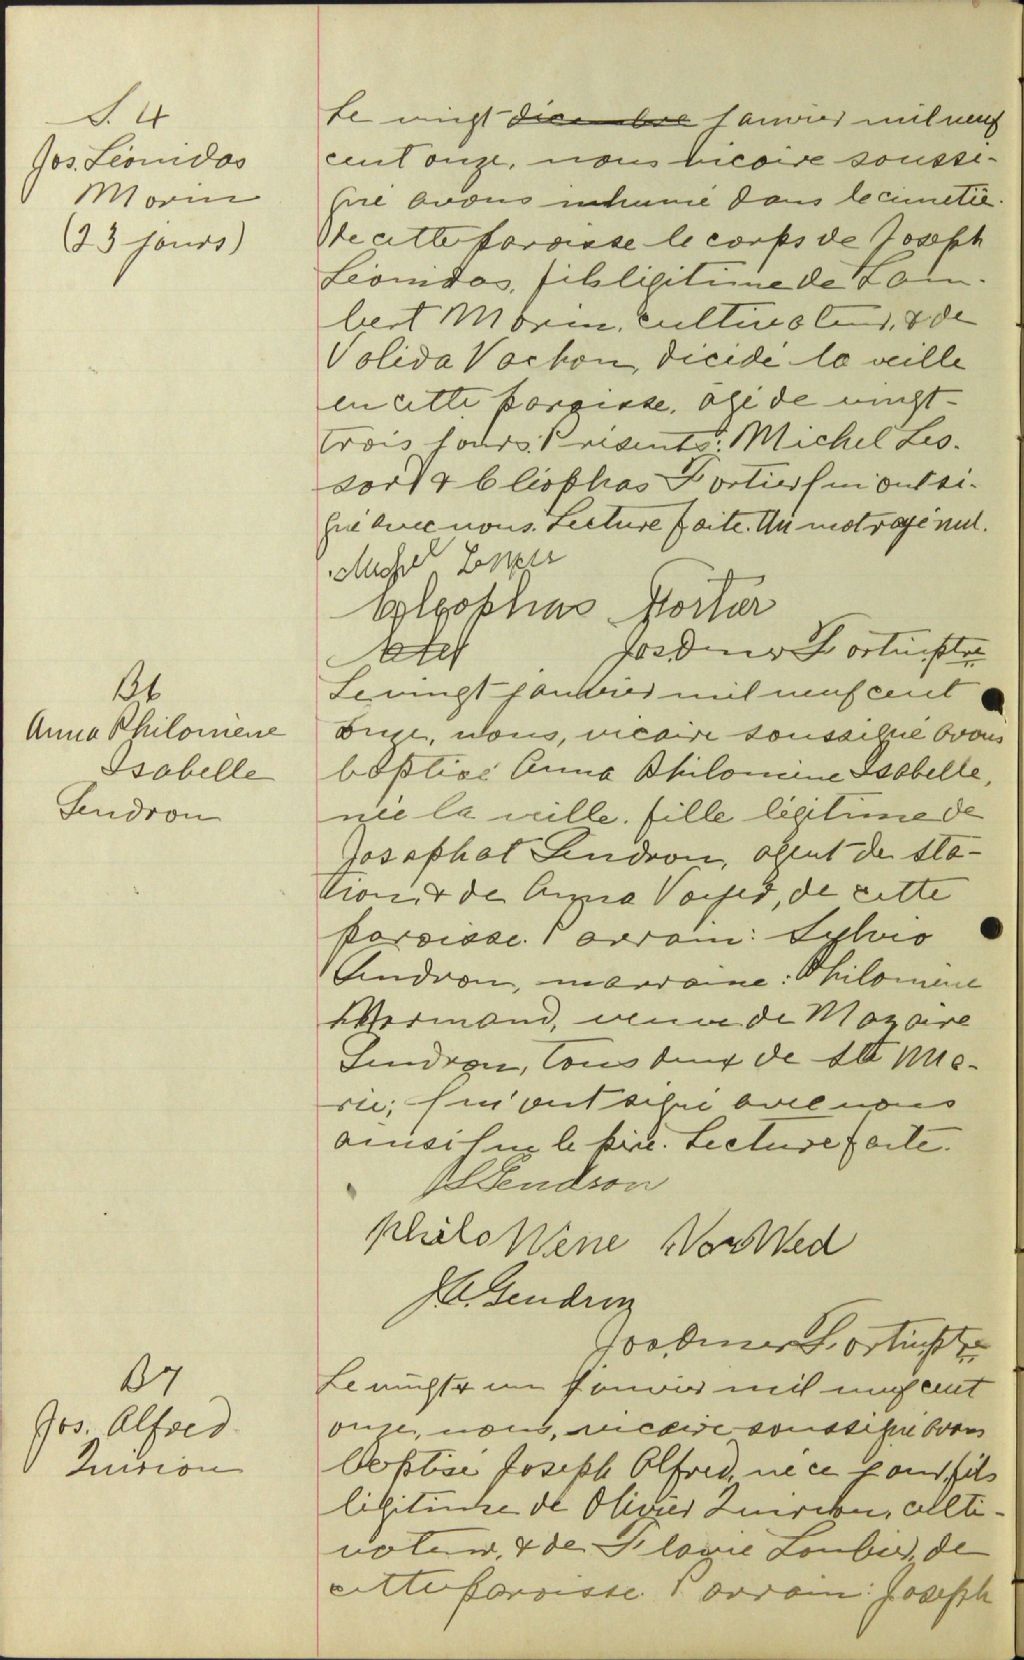 S. 4
Jos. Léonidas
Morin
(23 jours)
Le vingt décembre janvier mil neuf
cent onze, nous vicaire soussi-
gné avons inhumé dans le cimetiè-
re de cette paroisse le corps de Joseph
Léonidas, fils légitime de Lam-
bert Morin, cultivateur, & de
Valéda Vachon, décédé la veille
en cette paroisse, âgé de vingt-
trois jours. Présents: Michel Les-
sard & Cléophas Fortier qui ont si-
gné avec nous. Lecture faite. Un mot rayé nul.
Michel
Cleophas Fortier
Jos. Omer Fortin, ptre
B6
Anna Philomène
Isabelle
Gendron
Le vingt janvier mil neuf cent
onze, nous, vicaire soussigné avons
baptisé Anna Philomène Isabelle,
née la veille, fille légitime de
Josaphat Gendron, agent de sta-
tion, & de Anna Voyer, de cette
paroisse. Parrain: Sylvio
Gendron, marraine: Philomène
Normand, veuve de Mazaire
Gendron, tous deux de Ste Ma-
rie; qui ont signé avec nous
ainsi que le père. Lecture faite.
S Gendron
J.A. Gendron
Jos. Omer Fortin, ptre
B7
Jos. Alfred
Quirion
Le vingt & un janvier mil neuf cent
onze, nous, vicaire soussigné avons
baptisé Joseph Alfred, né ce jour, fils
légitime de Olivier Quirion, culti-
vateur, & de Flavie Loubier, de
cette paroisse. Parrain: Joseph